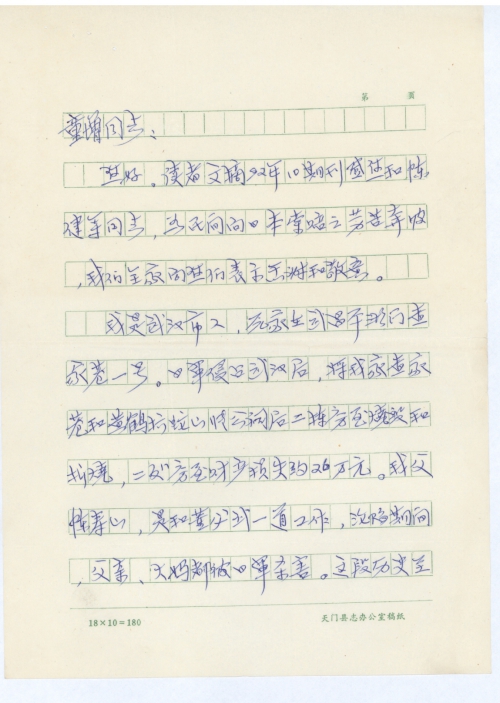 第 页
童增同志：
您好。读者文摘92年10期刊登您和陈
健等同志，为民间向日本索赔之劳苦奔波
，我们全家向您们表示感谢和敬意。
我是武汉市人，元家在武昌平湖门查
家巷一号。日军侵占武汉后，将我家查家
巷和黄鹤楼蛇山 后二栋房屋烧毁和
拆烧，二处房屋财产损失约26万元。我父
陈 山，是和董必武一道工作，沦陷期间
，父亲、大妈都被日军杀害。这段历史
18×10=180
天门县志办公室稿纸